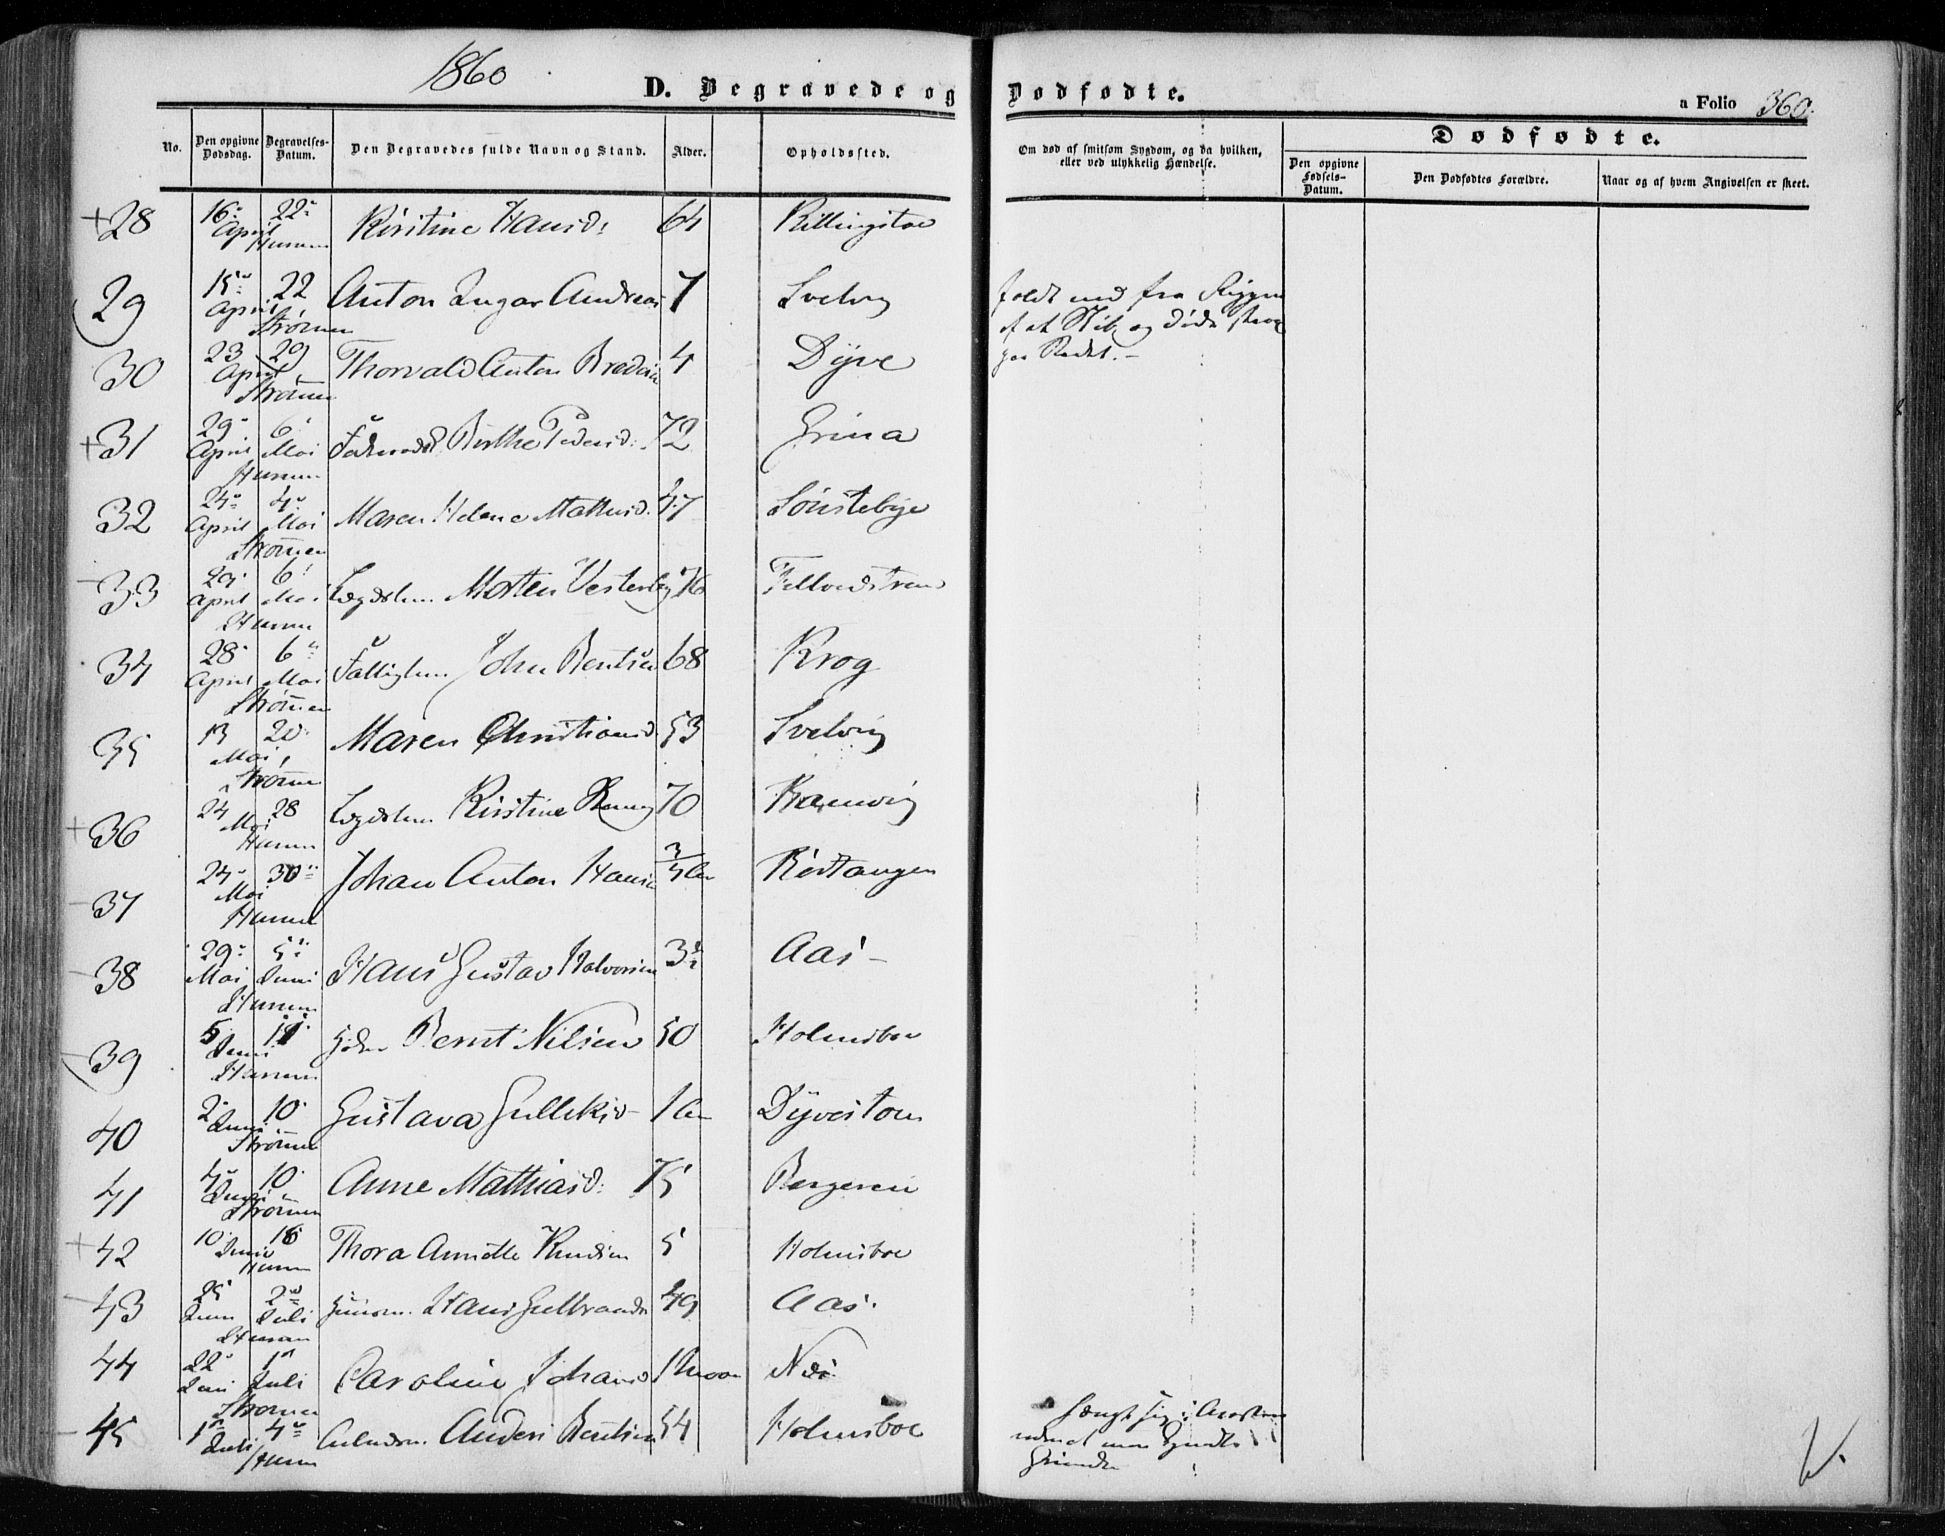 1860
D. Begravede og Dødfødte.
a Folio 360.
No.
Den opgivne Dødsdag.
Begravelses-Datum.
Den Begravedes fulde Navn og Stand.
Alder.
Opholdssted.
Om død af smitsom Sygdom, og da hvilken, eller ved ulykkelig Hændelse.
Dødfødte.
Den opgivne Fødsels-Datum.
Den Dødfødtes Forældre.
Naar og af hvem Angivelsen er skeet.
+28 16 April 22 Hurum Kirstine Hansd: 64 Killingstoe
29 15 April 22 Strømm Anton Ingar Andreas 7 Svelvig
faldt ned fra Riggen
af et Skib og døde strax
paa Stedet.
30 23 April 29 Strømm Thorvald Anton Bredesen 4 Dyve
+31 29 April 6 Mai Hurum Berthe Pedersd: 72 Grina
32 24 April 4 Mai Strømmen Maren Helene Mathisd. 47 Sønstebye
33 29 April 6 Mai Hurum Lægdslem Morten Vesterbye 76
34 28 April 6 Mai Strømmen Fattiglem John Bentsen 68 Krog
35 13 Mai 20 Strømm Maren Christiansd 53 Svelvig
+36 24 Mai 28 Hurum Lægdslem Kirstine 70
37 24 Mai 30 Hurum Johan Anton Hansen 3/4 Rødtangen
38 29 Mai 5 Juni Hurum Hans Gustav Halvorsen 3 Aas
39 5 Juni 11 Hurum Bernt Nilsen 50 Holmsboe
40 2 Juni 10 Strømm Gustava Gulliksd 1 Dyvestoen
41 4 Juni 10 Strømmen Anne Mathiasd: 75 Bergeren
+42 10 Juni 16 Hurum Thora Annette Knudsen 5 Holmsboe
43 25 Juni 2 Juli Hurum Huusm. Hans Gulbrands 49 Aas.
44 22 Juni 1 Juli Strømm Caroline Johansd 1 Næs
45 1 Juli 4 Hurum Anders Bentsen 54 Holmsboe
hængt sig i
Grunde